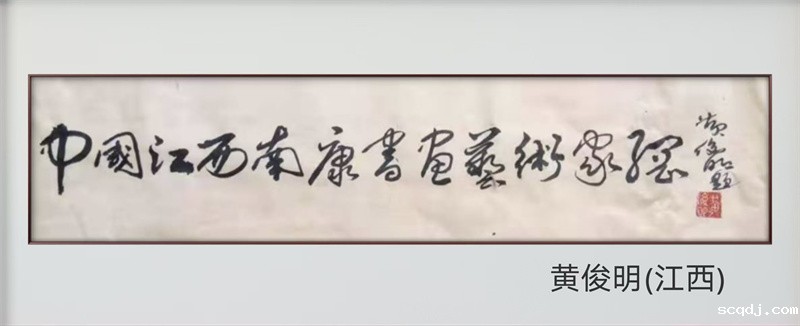 中國江西南康書画藝術家網
黄俊明題
黄俊明(江西)
scqdj.com